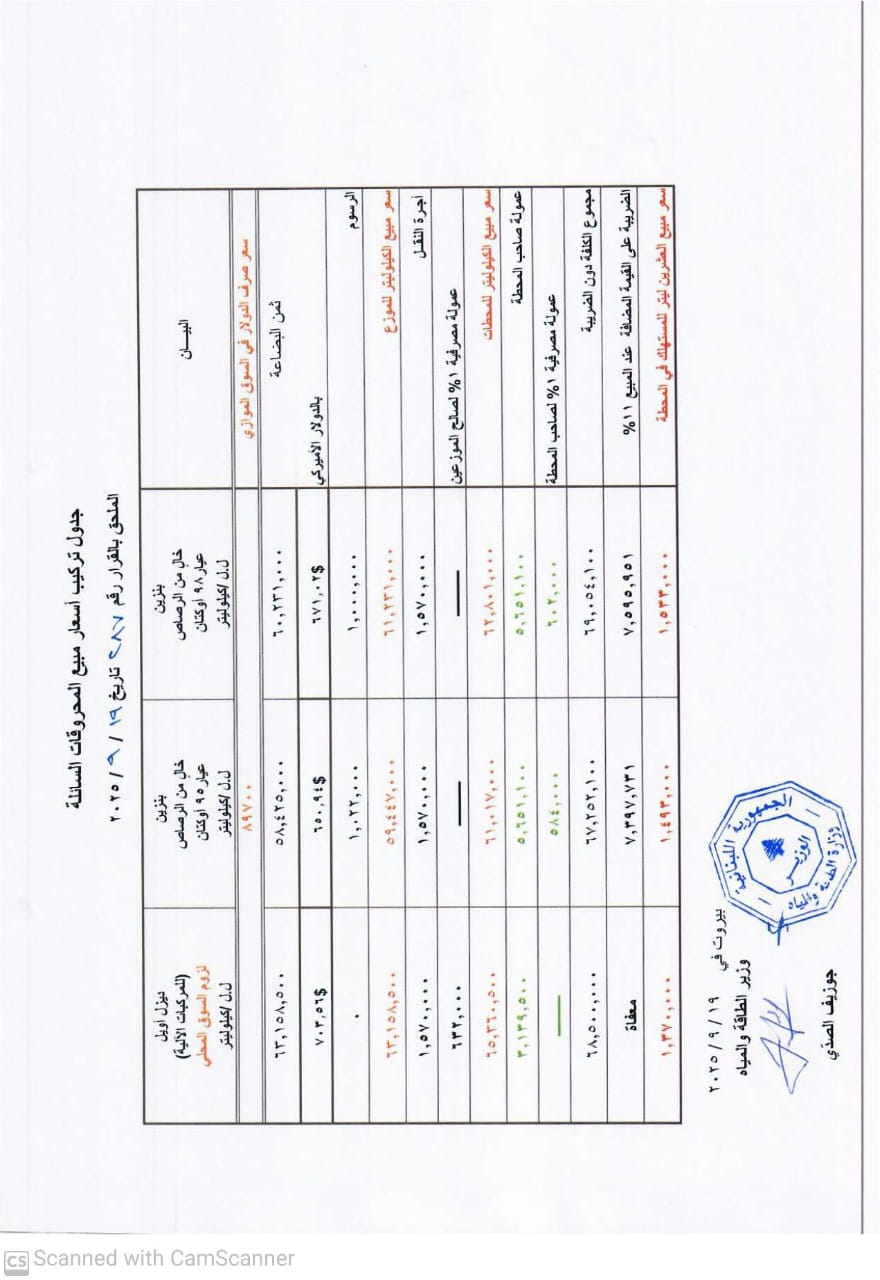 جدول تركيب أسعار مبيع المحروقات السائلة
الملحق بالقرار رقم ٢٨٧ تاريخ ١٩ / ٩ / ٢٠٢٥
البيـــان
بنزين
خالٍ من الرصاص
عيار ٩٨ أوكتان
ل.ل/كيلوليتر
بنزين
خالٍ من الرصاص
عيار ٩٥ أوكتان
ل.ل/كيلوليتر
ديزل أويل
(للمركبات الآلية)
لزوم السوق المحلي
ل.ل/كيلوليتر
سعر صرف الدولار في السوق الموازي ٨٩٧٠٠
ثمن البضاعة ٦٠,٢٣١,٠٠٠ ٥٨,٤٢٥,٠٠٠ ٦٣,١٥٨,٥٠٠
بالدولار الأميركي ٦٧١,٠٢$ ٦٥٠,٩٤$ ٧٠٣,٥٦$
الرسوم ١,٠٠٠,٠٠٠ ١,٠٢٢,٠٠٠ ٠
سعر مبيع الكيلوليتر للموزع ٦١,٢٣١,٠٠٠ ٥٩,٤٤٧,٠٠٠ ٦٣,١٥٨,٥٠٠
أجرة النقـل ١,٥٧٠,٠٠٠ ١,٥٧٠,٠٠٠ ١,٥٧٠,٠٠٠
عمولة مصرفية ١% لصالح الموزعين — — ٦٣٢,٠٠٠
سعر مبيع الكيلوليتر للمحطات ٦٢,٨٠١,٠٠٠ ٦١,٠١٧,٠٠٠ ٦٥,٣٦٠,٥٠٠
عمولة صاحب المحطة ٥,٦٥١,١٠٠ ٥,٦٥١,١٠٠ ٣,١٣٩,٥٠٠
عمولة مصرفية ١% لصاحب المحطة ٦٠٢,٠٠٠ ٥٨٤,٠٠٠ —
مجموع الكلفة دون الضريبة ٦٩,٠٥٤,١٠٠ ٦٧,٢٥٢,١٠٠ ٦٨,٥٠٠,٠٠٠
الضريبة على القيمة المضافة عند المبيع ١١% ٧,٥٩٥,٩٥١ ٧,٣٩٧,٧٣١ معفاة
سعر مبيع العشرين ليتر للمستهلك في المحطة ١,٥٣٣,٠٠٠ ١,٤٩٣,٠٠٠ ١,٣٧٠,٠٠٠
بيروت في ١٩ / ٩ / ٢٠٢٥
وزير الطاقة والمياه
جوزيف الصدّي
الجمهورية اللبنانية
الوزير
وزارة الطاقة والمياه
CS Scanned with CamScanner